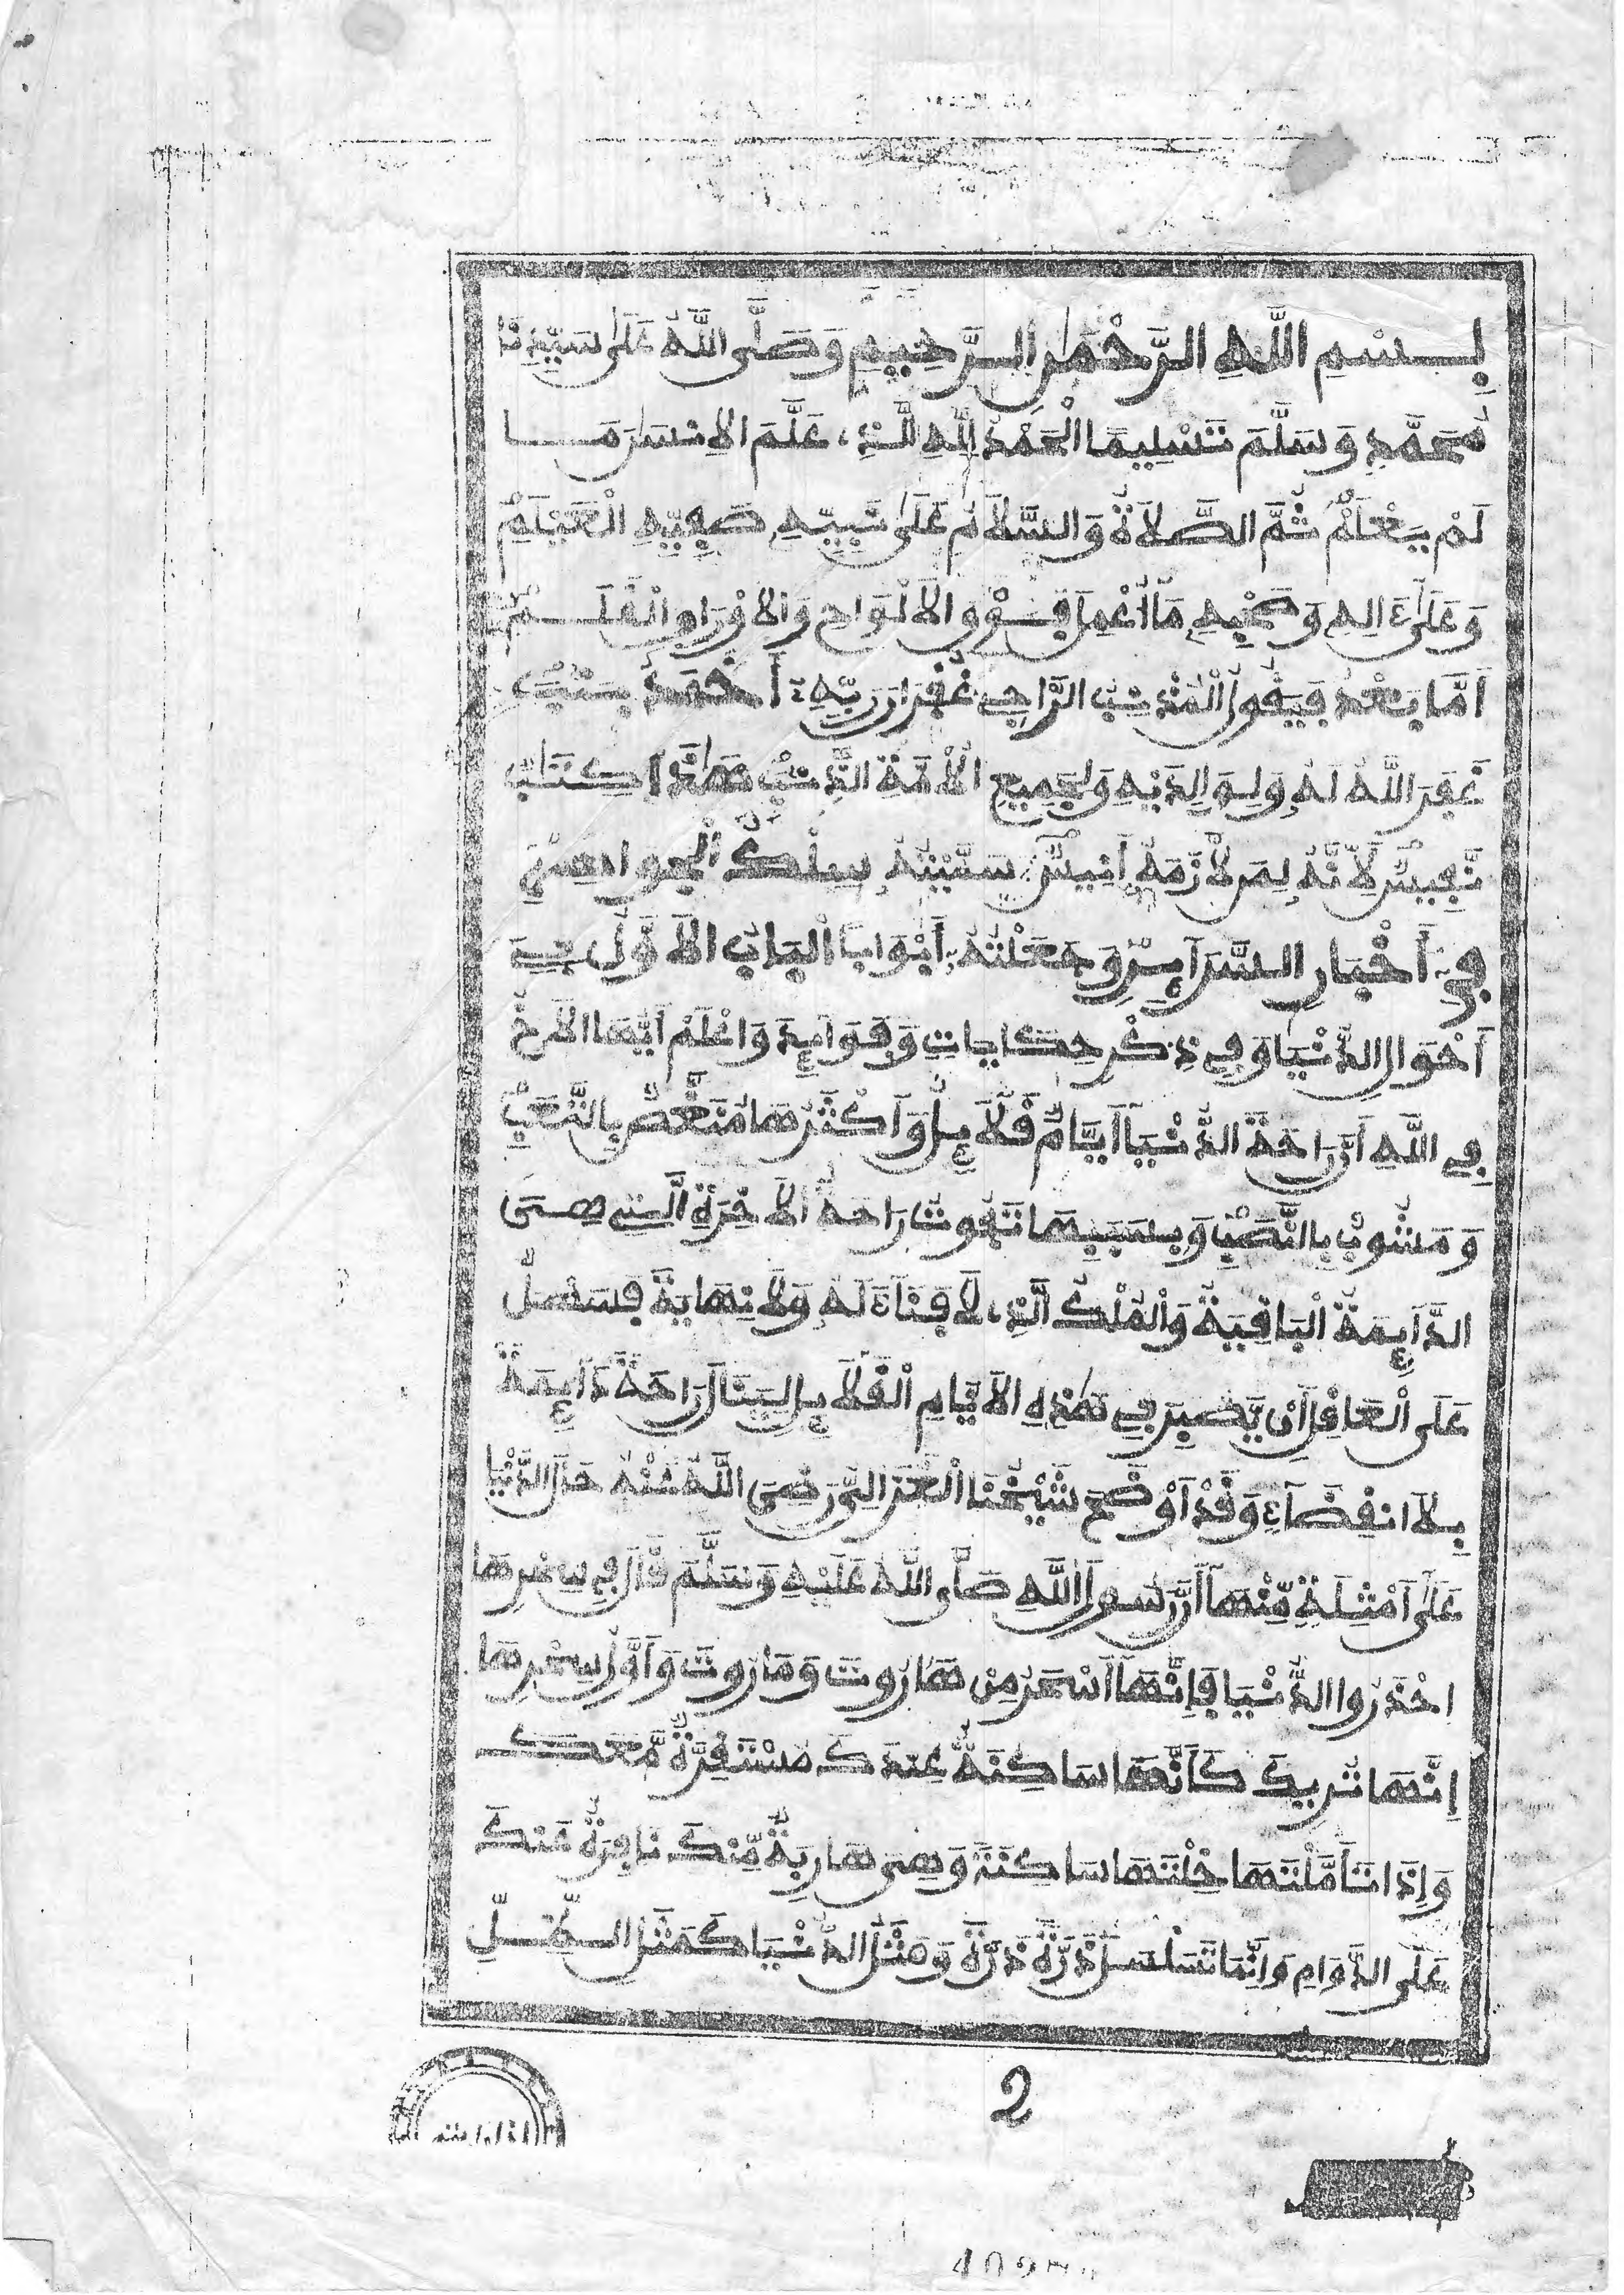 بِسْمِ اللَّهِ الرَّحْمَٰنِ الرَّحِيمِ وَصَلَّى اللَّهُ عَلَىٰ سَيِّدِنَا
مُحَمَّدٍ وَسَلَّمَ تَسْلِيمًا الْحَمْدُ لِلَّهِ الَّذِي عَلَّمَ الْإِنسَٰنَ مَا
لَمْ يَعْلَمْ ثُمَّ الصَّلَاةُ وَالسَّلَامُ عَلَىٰ نَبِيِّهِ صَفِيِّهِ الْعَيْلَمِ
وَعَلَىٰ ءَالِهِ وَصَحْبِهِ مَا أُعْمِلَ فَوْقَ الْأَلْوَاحِ وَالْأَوْرَاقِ الْقَلَمُ
أَمَّا بَعْدُ فَيَقُولُ الْمُذْنِبُ الرَّاجِي غُفْرَانَ رَبِّهِ أَحْمَدُ
غَفَرَ اللَّهُ لَهُ وَلِوَالِدَيْهِ وَلِجَمِيعِ الْأُمَّةِ هَٰذَا كِتَابٌ
نَّفِيسٌ لِأَنَّهُ لِمَن لَّازَمَهُ أَنِيسٌ سَمَّيْتُهُ سِلْكُ الْجَوَاهِرِ
فِي أَخْبَارِ السَّرَآئِرِ وَجَعَلْتُهُ أَبْوَابًا الْبَابُ الْأَوَّلُ فِي
أَحْوَالِ الدُّنْيَا وَفِي ذِكْرِ حِكَايَاتٍ وَفَوَآئِدَ وَاعْلَمْ أَيُّهَا الْأَخُ
فِي اللَّهِ أَنَّ رَاحَةَ الدُّنْيَا أَيَّامٌ قَلَآئِلُ وَأَكْثَرُهَا مُنَغَّصٌ بِالتَّعَبِ
وَمَشُوبٌ بِالنَّصَبِ وَبِسَبَبِهَا تَفُوتُ رَاحَةُ الْآخِرَةِ الَّتِي هِيَ
الدَّآئِمَةُ الْبَاقِيَةُ وَالْمُلْكُ الَّذِي لَا فَنَآءَ لَهُ وَلَا نِهَايَةَ فَسَهْلٌ
عَلَى الْعَاقِلِ أَنْ يَّصْبِرَ فِي هَٰذِهِ الْأَيَّامِ الْقَلَآئِلِ لِيَنَالَ رَاحَةً دَآئِمَةً
بِلَا انقِضَآءٍ وَقَدْ أَوْضَحَ شَيْخُنَا الْغَزَالِيُّ رَضِيَ اللَّهُ عَنْهُ حَالَ الدُّنْيَا
عَلَىٰ أَمْثِلَةٍ مِّنْهَا أَنَّ رَسُولَ اللَّهِ صَلَّى اللَّهُ عَلَيْهِ وَسَلَّمَ قَالَ فِي سِحْرِهَا
احْذَرُوا الدُّنْيَا فَإِنَّهَا أَسْحَرُ مِنْ هَارُوتَ وَمَارُوتَ وَأَوَّلُ سِحْرِهَا
إِنَّهَا تُرِيكَ كَأَنَّهَا سَاكِنَةٌ عِندَكَ مُسْتَقِرَّةٌ مَّعَكَ
وَإِذَا تَأَمَّلْتَهَا خِلْتَهَا سَاكِنَةً وَهِيَ هَارِبَةٌ مِّنكَ نَافِرَةٌ عَنكَ
عَلَى الدَّوَامِ وَإِنَّمَا تَسَلْسَلُ ذَرَّةً ذَرَّةً وَمَثَلُ الدُّنْيَا كَمَثَلِ الظِّلِّ
2